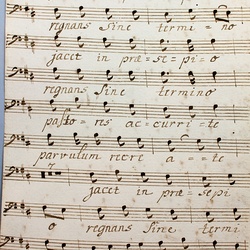 regnans sine termi= no
jacet in præ=se=pi=o
regnans sine termino
pasto= res ac=curri=te
parvulum recre a = = te
7
jacet in præ= sepi
o regnans sine termi